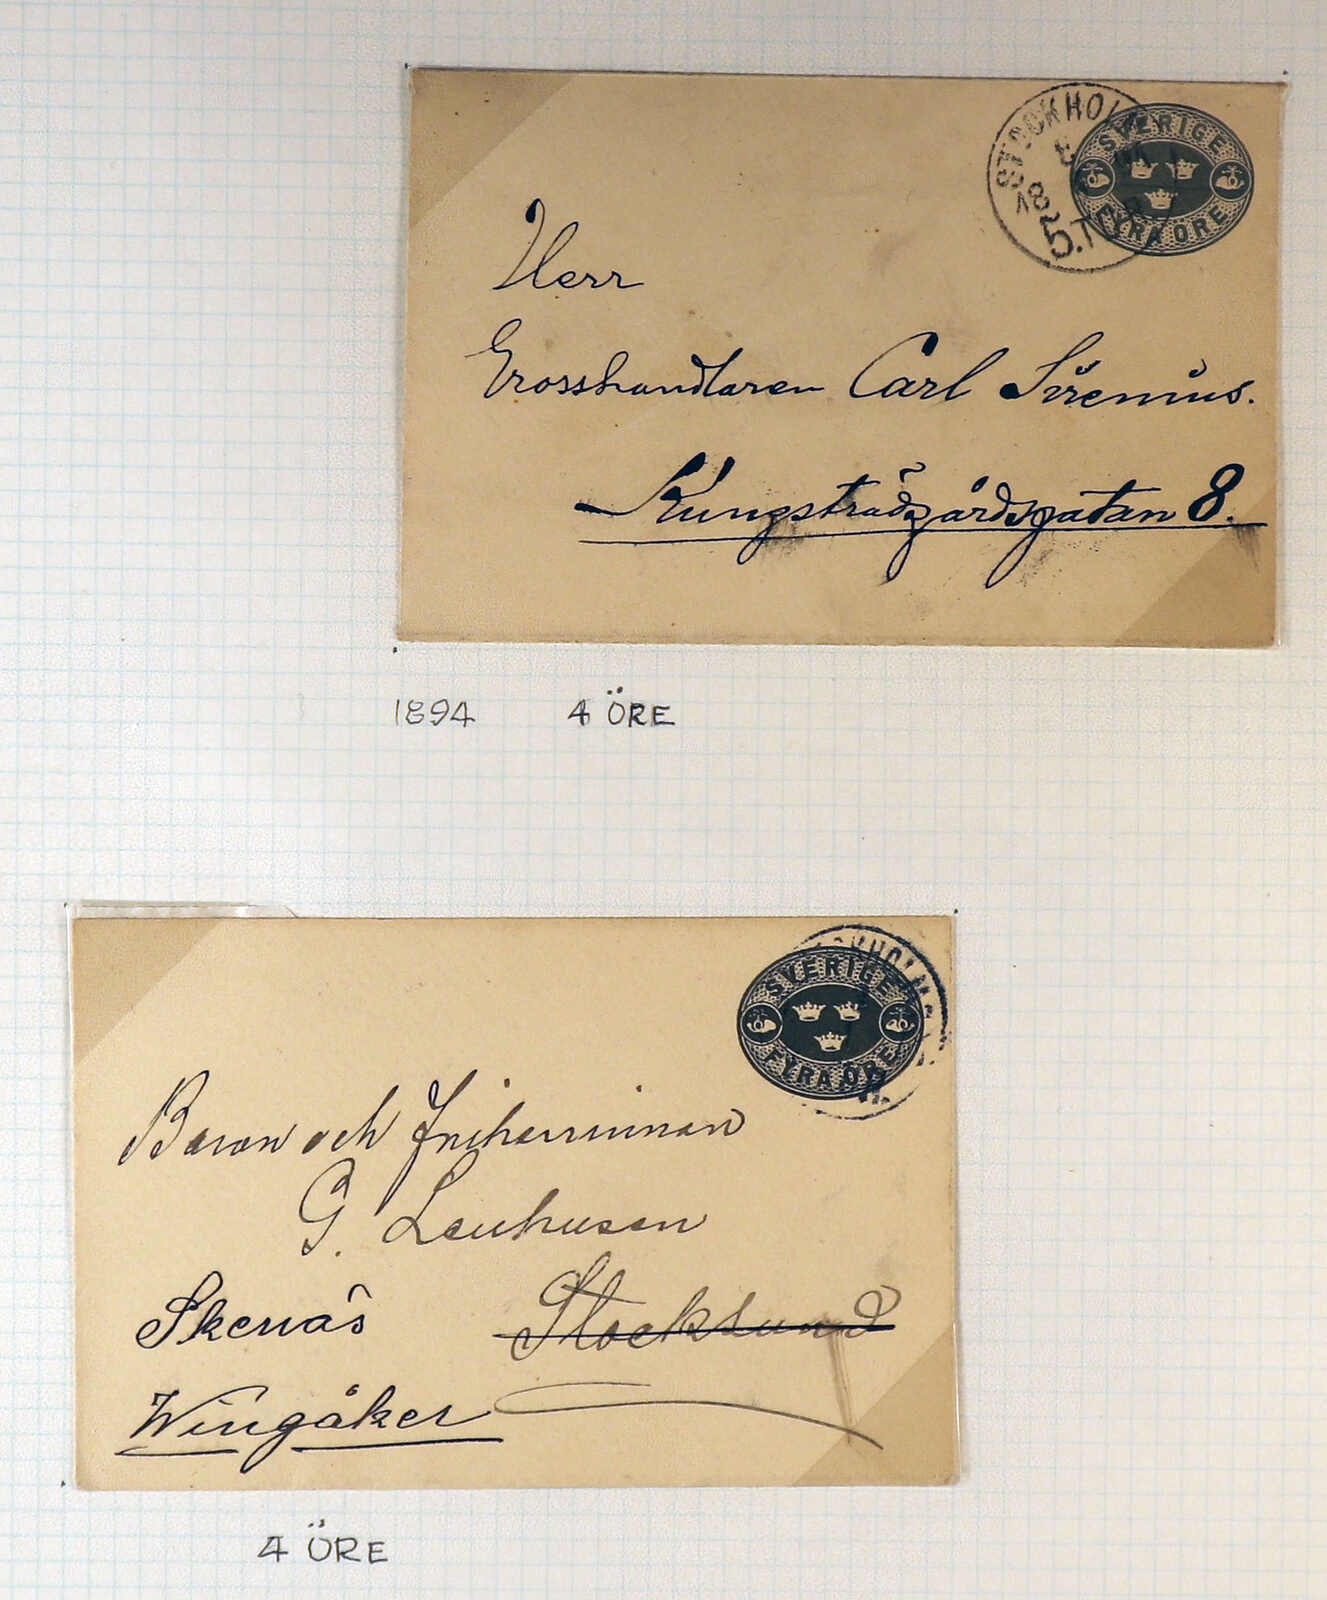 STOCKHOL
SVERIGE
FYRA ÖRE
Herr
Grosshandlaren Carl Sirenius.
Kungsträdgårdsgatan 8.
1894 4 ÖRE
SVERIGE
FYRA ÖRE
Baron och Friherrinnan
G. Leuhusen
Skenäs Stocksund
Wingåker
4 ÖRE